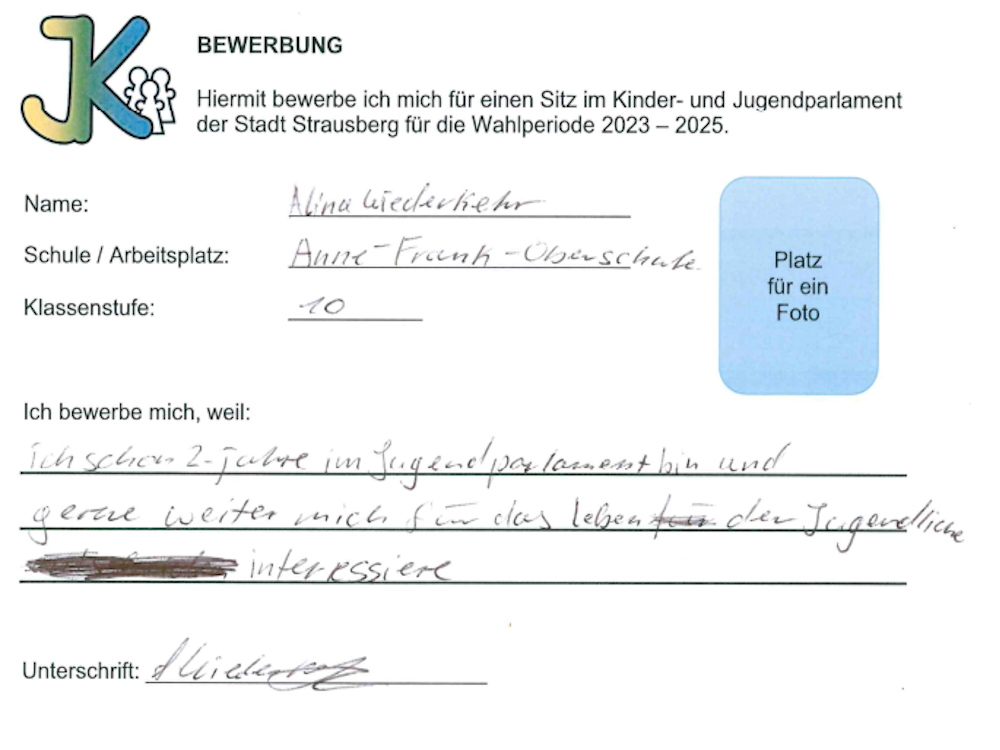 JK
BEWERBUNG
Hiermit bewerbe ich mich für einen Sitz im Kinder- und Jugendparlament
der Stadt Strausberg für die Wahlperiode 2023 – 2025.
Name: Alina Wiederkehr
Schule / Arbeitsplatz: Anne-Frank-Oberschule
Klassenstufe: 10
Platz
für ein
Foto
Ich bewerbe mich, weil:
ich schon 2-Jahre im Jugendparlament bin und
gerne weiter mich für das leben für der Jugendliche
interessiere
Unterschrift: